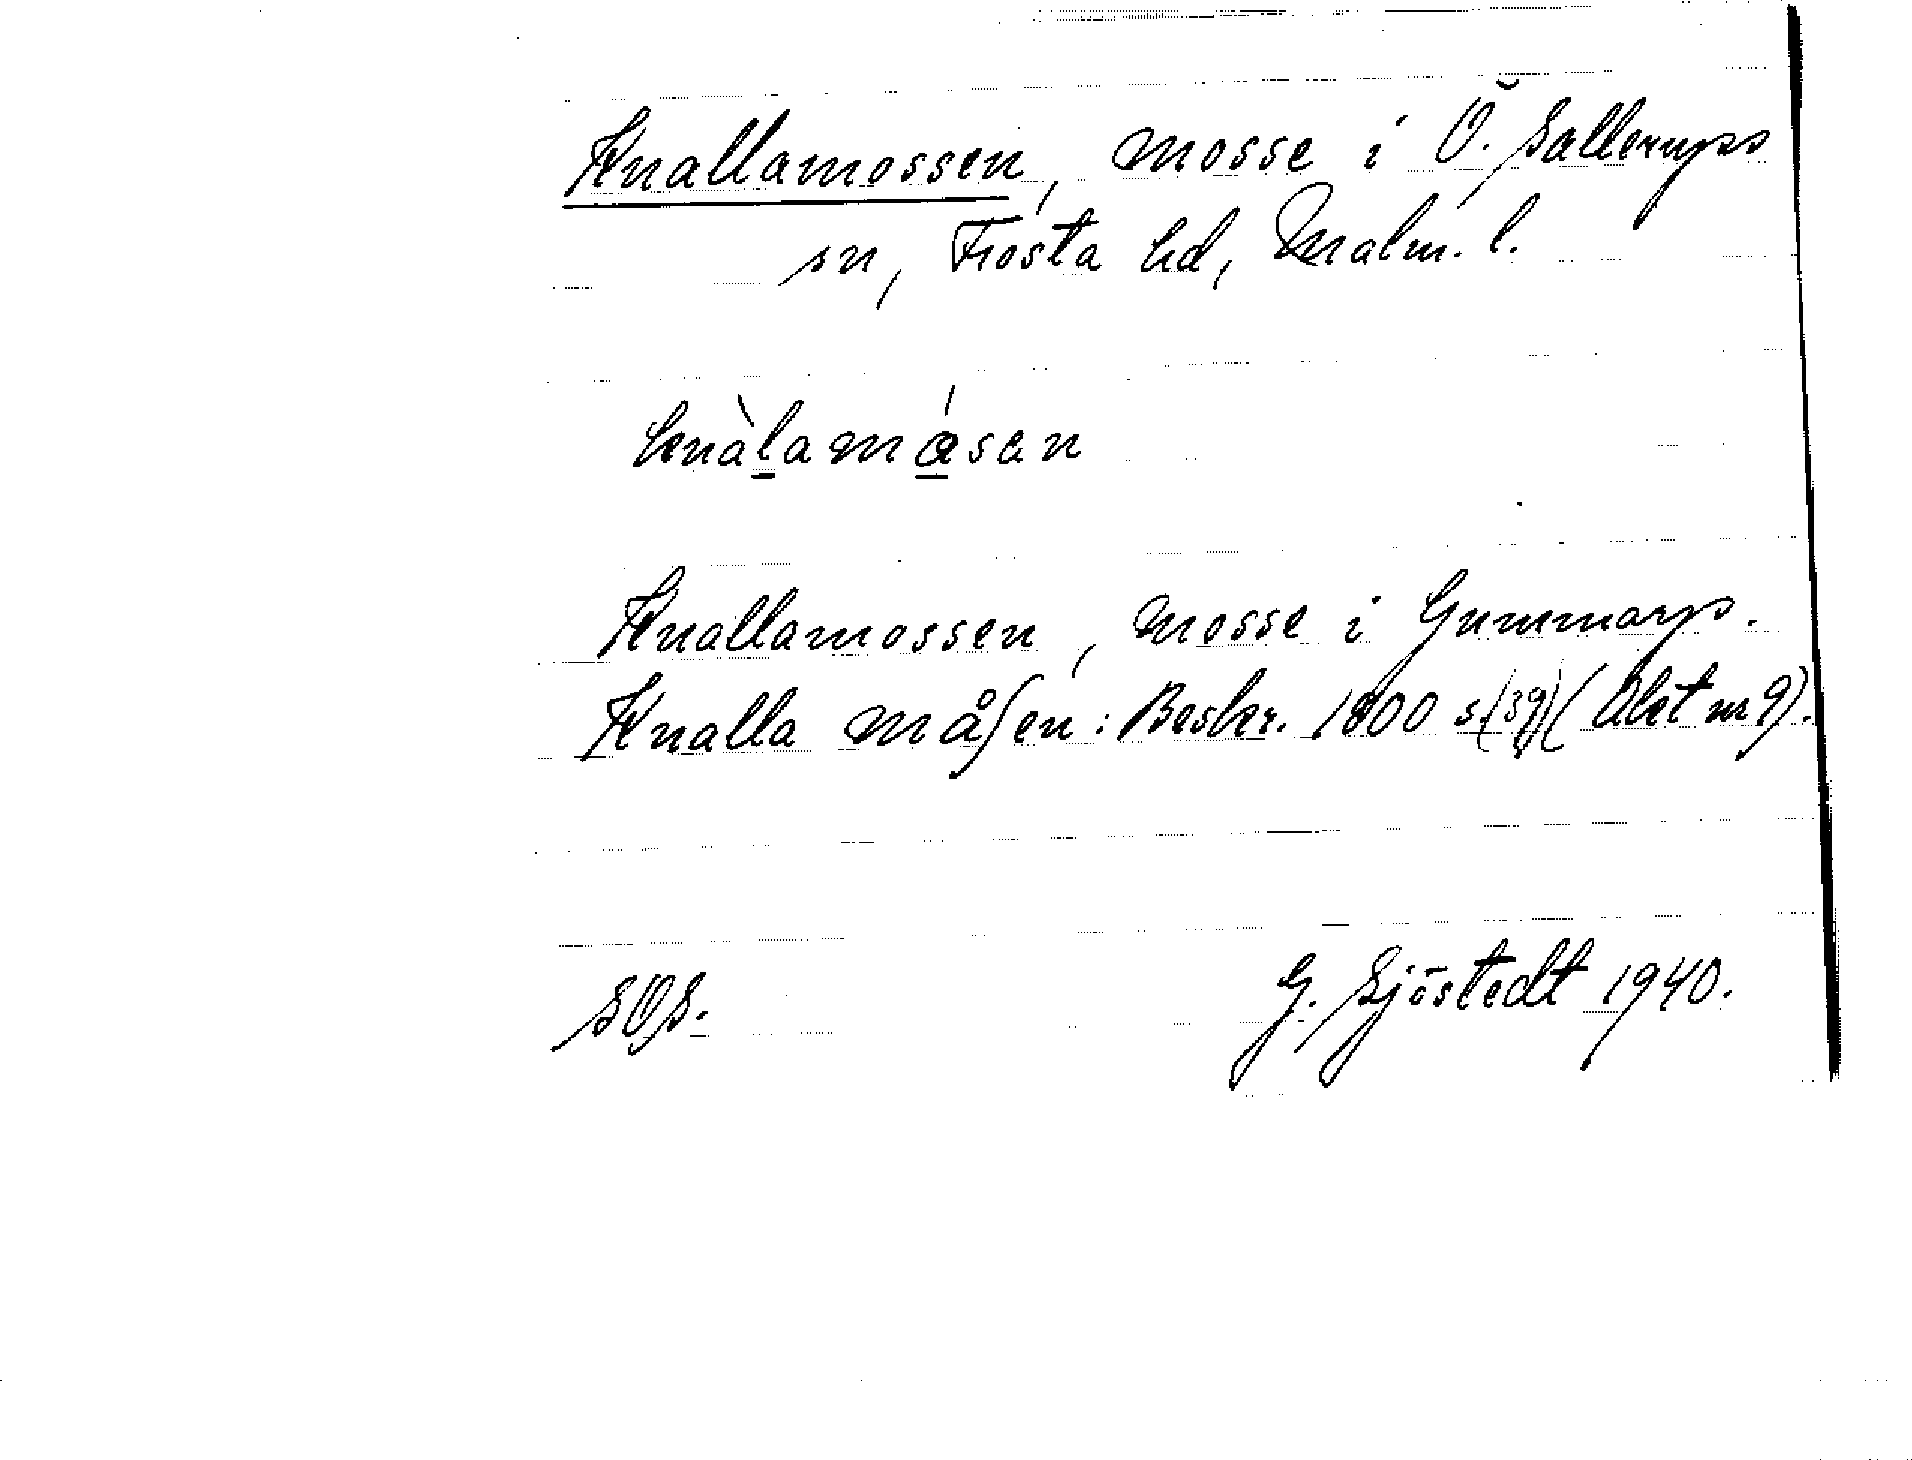 Knallamossen, mosse i Ö. Sallerups
sn, Frosta hd, Malm. l.
knàlamɑ́sen
Knallamossen, mosse i Gummarp.
Knalla måſen: Beskr. 1800 s (39) (Akt nr 9).
SOS. G. Sjöstedt 1940.